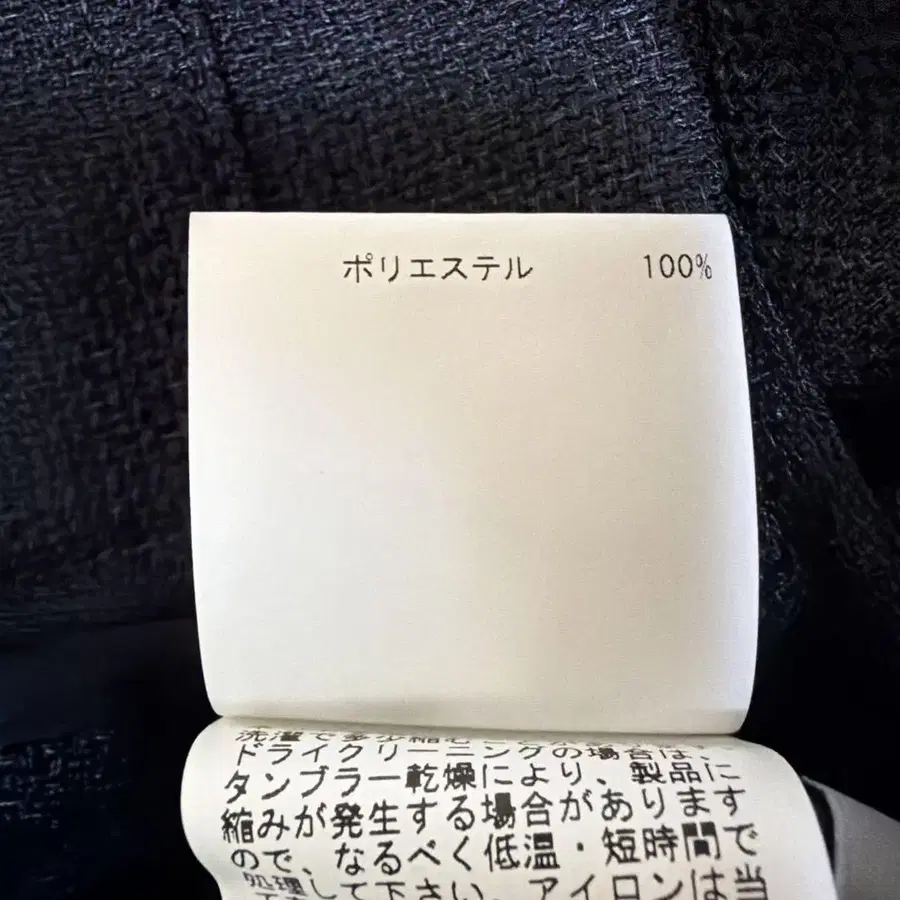 ポリエステル 100%
洗濯で多少縮む
ドライクリーニングの場合は、
タンブラー乾燥により、製品に
縮みが発生する場合があります
ので、なるべく低温・短時間で
処理して下さい。アイロンは当